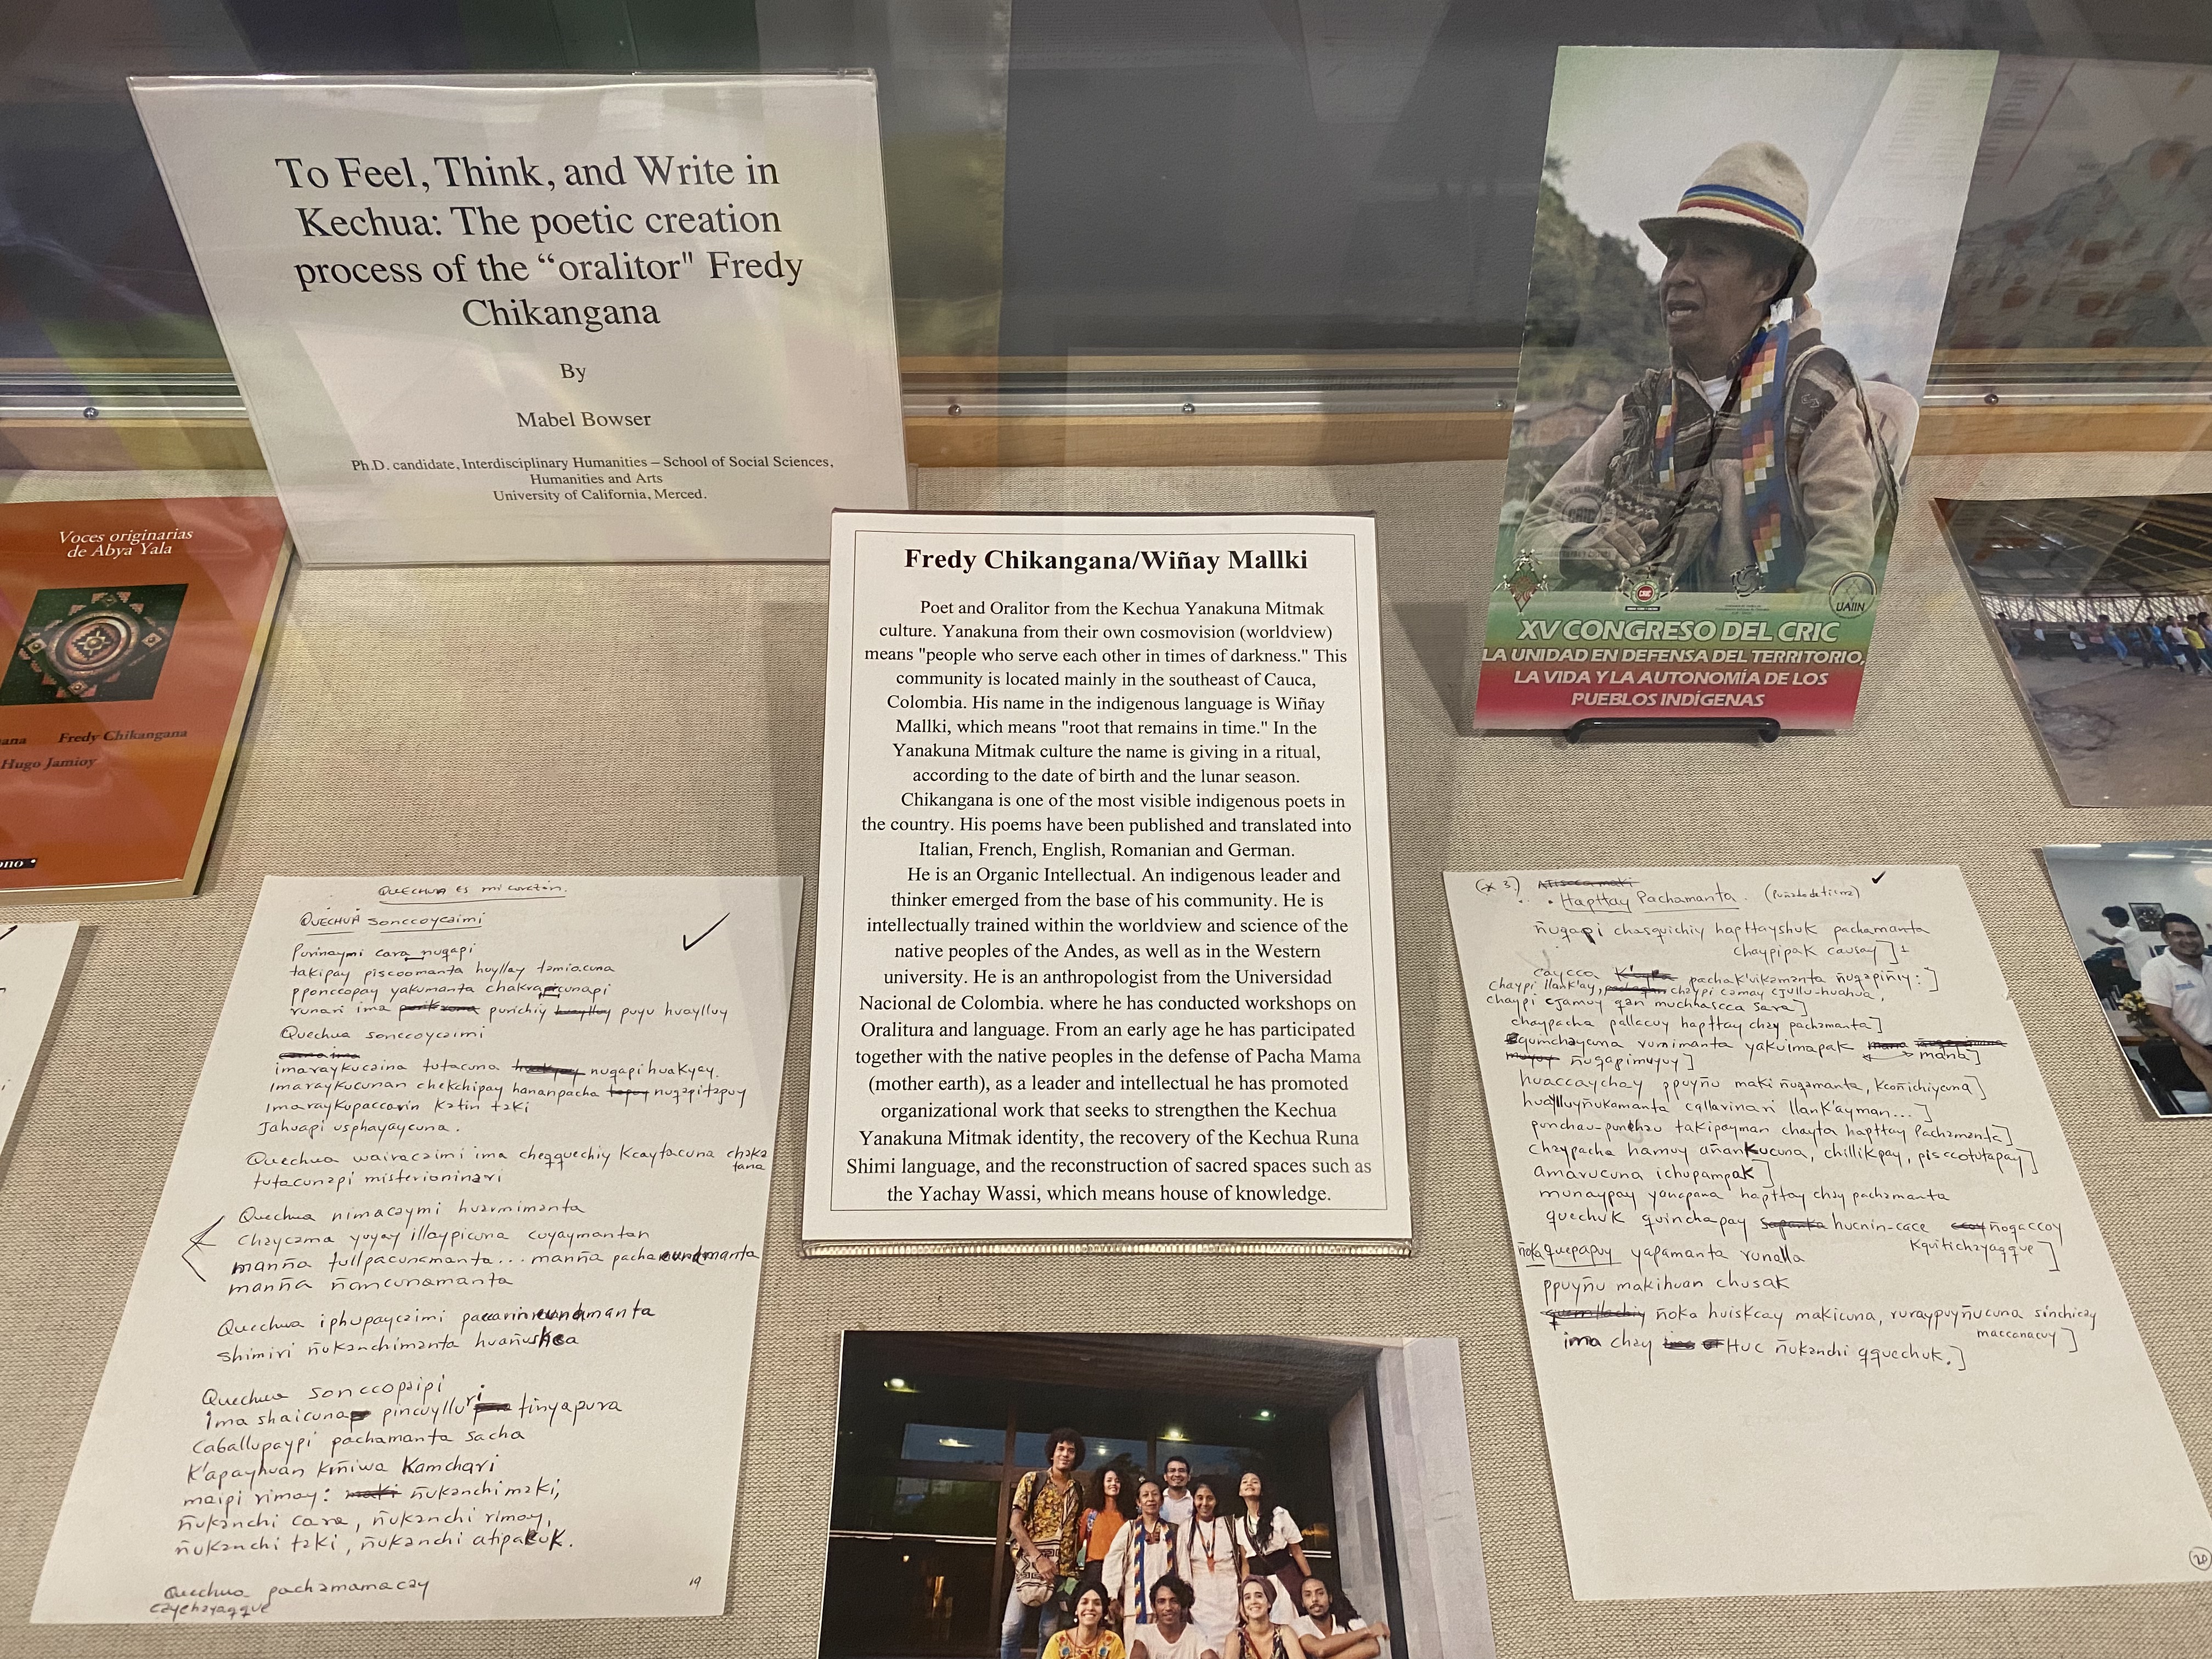 To Feel, Think, and Write in
Kechua: The poetic creation
process of the “oralitor" Fredy
Chikangana
By
Mabel Bowser
Ph.D. candidate, Interdisciplinary Humanities – School of Social Sciences,
Humanities and Arts
University of California, Merced.
Voces originarias
de Abya Yala
Fredy Chikangana
Hugo Jamioy
Fredy Chikangana/Wiñay Mallki
Poet and Oralitor from the Kechua Yanakuna Mitmak
culture. Yanakuna from their own cosmovision (worldview)
means "people who serve each other in times of darkness." This
community is located mainly in the southeast of Cauca,
Colombia. His name in the indigenous language is Wiñay
Mallki, which means "root that remains in time." In the
Yanakuna Mitmak culture the name is giving in a ritual,
according to the date of birth and the lunar season.
Chikangana is one of the most visible indigenous poets in
the country. His poems have been published and translated into
Italian, French, English, Romanian and German.
He is an Organic Intellectual. An indigenous leader and
thinker emerged from the base of his community. He is
intellectually trained within the worldview and science of the
native peoples of the Andes, as well as in the Western
university. He is an anthropologist from the Universidad
Nacional de Colombia. where he has conducted workshops on
Oralitura and language. From an early age he has participated
together with the native peoples in the defense of Pacha Mama
(mother earth), as a leader and intellectual he has promoted
organizational work that seeks to strengthen the Kechua
Yanakuna Mitmak identity, the recovery of the Kechua Runa
Shimi language, and the reconstruction of sacred spaces such as
the Yachay Wassi, which means house of knowledge.
CRIC
UAIIN
XV CONGRESO DEL CRIC
LA UNIDAD EN DEFENSA DEL TERRITORIO,
LA VIDA Y LA AUTONOMÍA DE LOS
PUEBLOS INDÍGENAS
QUECHUA es mi corazón.
QUECHUA sonccoycaimi
Purinaymi cara nuqapi
takipay piscoomanta huyllay tamiacuna
pponccopay yakumanta
runari ima purichiy puyu huaylluy
Quechua sonccoycaimi
imaraykucaina tutacuna nuqapi huakyay.
Imaraykucunan chekchipay hananpacha nuqapitapuy
Imaraykupaccarin katin taki
Jahuapi usphayaycuna.
Quechua wairacaimi ima cheqquechiy kcaytacuna chaka
tana
tutacunapi misterioninari
Quechua nimacaymi huarmimanta
Chaycama yuyay illaypicuna cuyaymantan
manña tullpacunamanta... manña
manña ñancunamanta
Quechua iphupaycaimi
shimiri ñukanchimanta
Quechua sonccopaipi
ima pincuylluri tinyapura
Caballupaypi pachamanta sacha
K'apayhuan kiñiwa Kamchari
maipi rimay: ñukanchi maki,
ñukanchi cara, ñukanchi rimay,
ñukanchi taki, ñukanchi
Quechua pachamamacay
caychayaqque
19
Hapttay Pachamanta. (Puñado de tierra)
ñuqapi chasquichiy hapttayshuk pachamanta
chaypipak causay] 1
caycca pachak'uikamanta ñuqapiñiy:]
chaypi llank'ay, chaypi camay cjullu-huahua,
chaypi cjamuy qan muchhascca sara]
chaypacha pallacuy hapttay chay pachamanta]
rumimanta yakuimapak
mana]
ñuqapimuyuy]
huaccaychay ppuyñu maki ñuqamanta, kconichiycuna]
callarinari llank'ayman...]
punchau-punchau takipayman chayta hapttay Pachamanta]
Chaypacha hamuy añankucuna, chillikpay, pisccotutapay]
amarucuna ichupampak]
munaypay yanapana hapttay chay pachamanta
quechuk quinchapay hucnin-cace ñogaccoy
kquitichayaqque]
ñoka quepapuy yapamanta runalla
ppuyñu makihuan chusak
ñoka huiskcay makicuna, ruraypuyñucuna sinchicay
maccanacuy]
ima chay Huc ñukanchi qquechuk.]
20